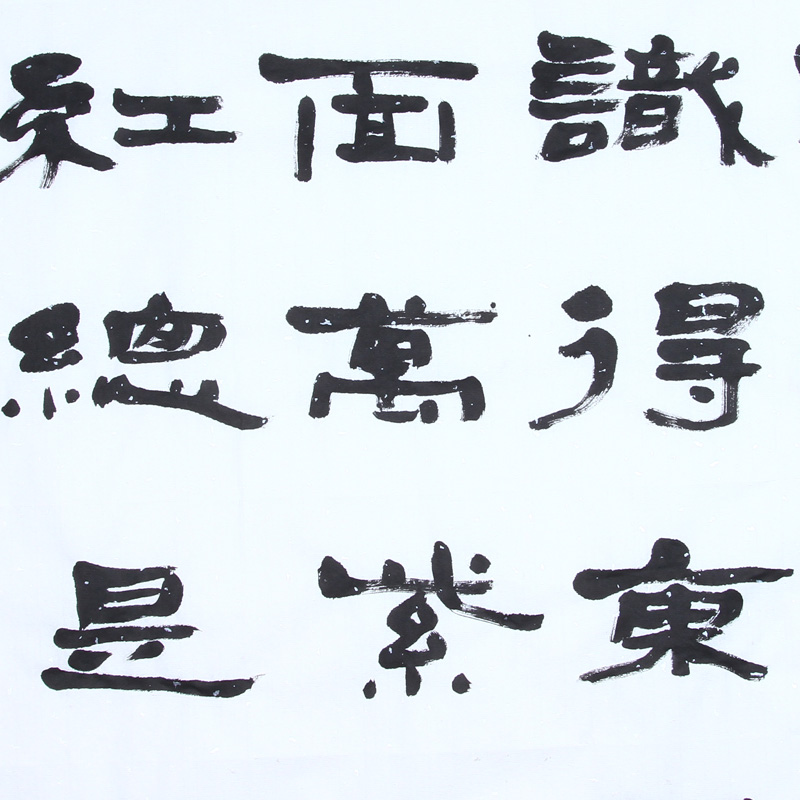 識得東
面萬紫
紅總是